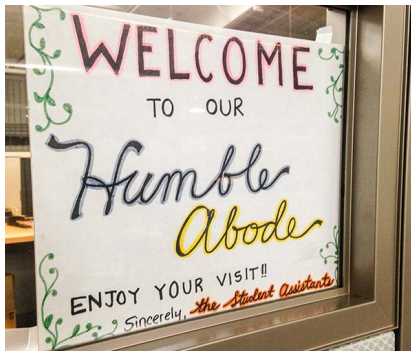 WELCOME
TO OUR
Humble
Abode
ENJOY YOUR VISIT!!
Sincerely, the Student Assistants